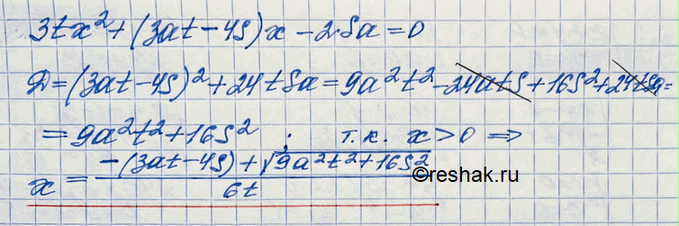 3tx² + (3at - 4S)x - 2·Sa = 0
D = (3at - 4S)² + 24tSa = 9a²t² - 24atS + 16S² + 24tSa =
= 9a²t² + 16S² ; т.к. x > 0 ⇒
x = (-(3at - 4S) + √(9a²t² + 16S²)) / 6t
©reshak.ru